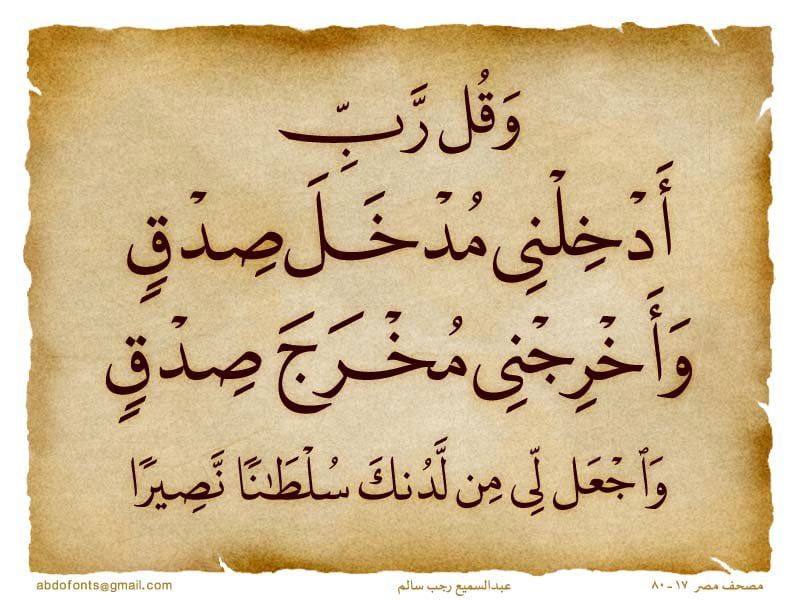 وَقُل رَّبِّ
أَدْخِلْنِى مُدْخَلَ صِدْقٍ
وَأَخْرِجْنِى مُخْرَجَ صِدْقٍ
وَٱجْعَل لِّى مِن لَّدُنكَ سُلْطَٰنًا نَّصِيرًا
مصحف مصر ١٧ - ٨٠ عبدالسميع رجب سالم abdofonts@gmail.com